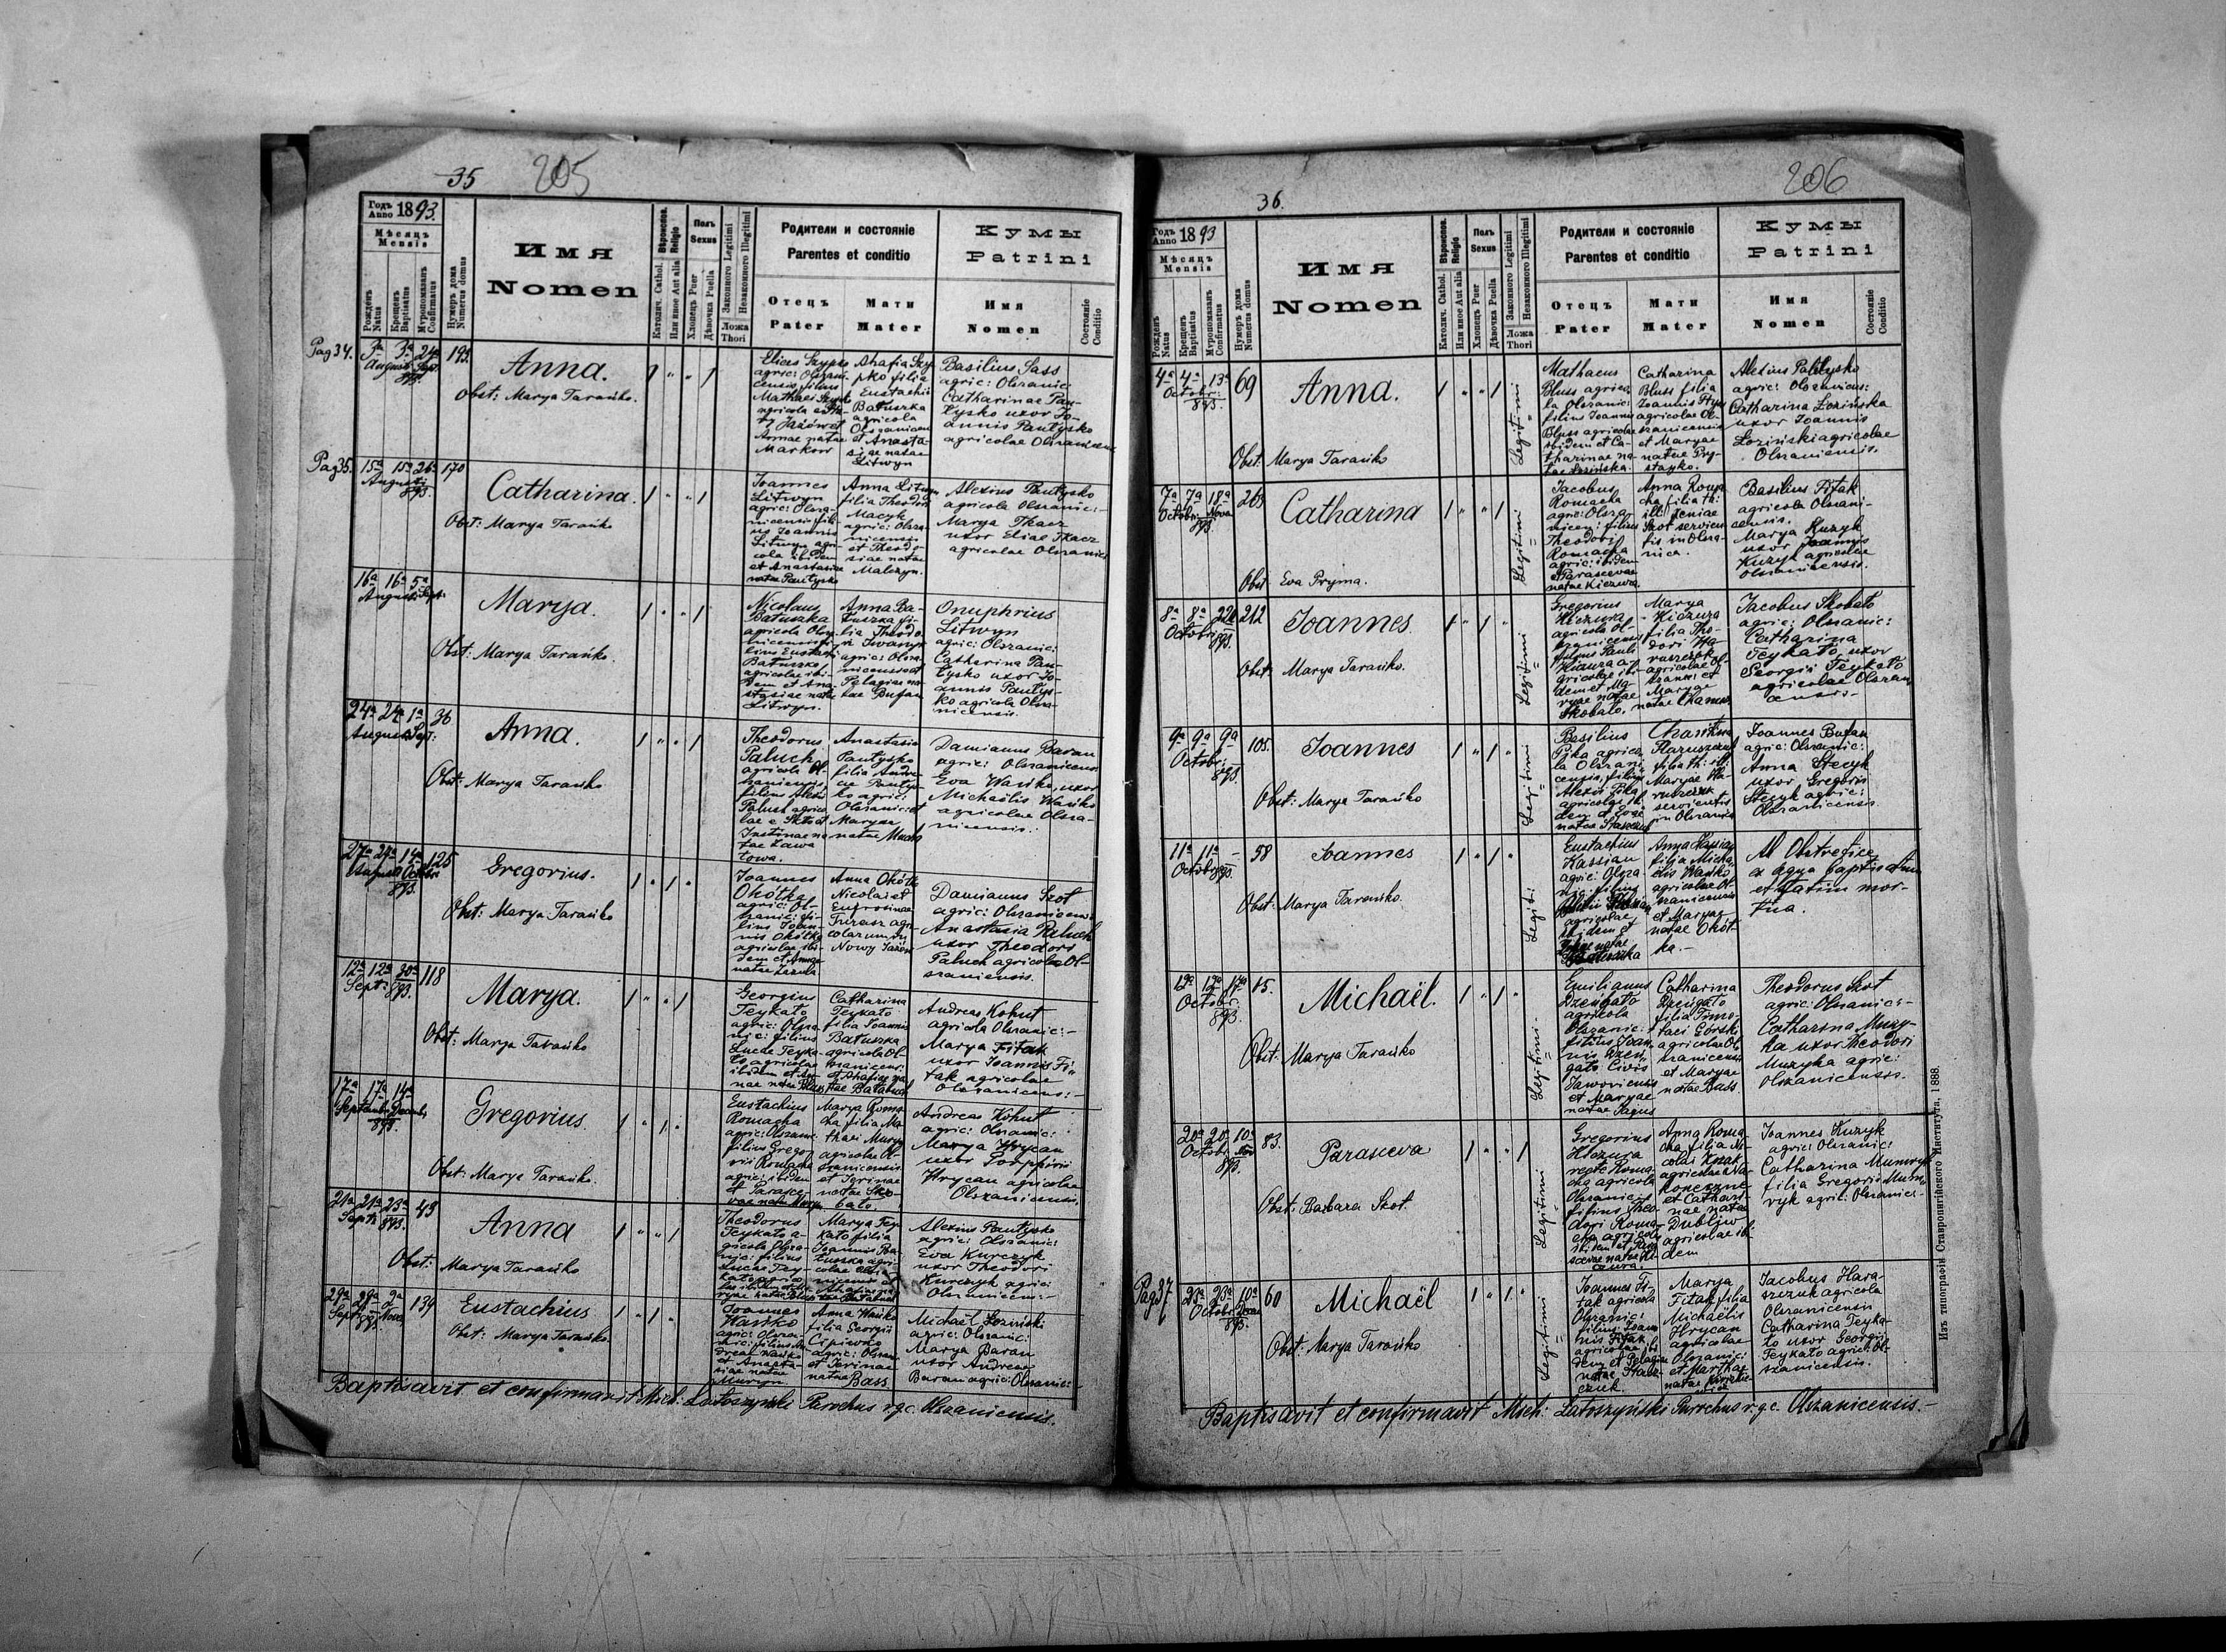 35 205
Годъ Anno 1893.
Мѣсяцъ
Mensis
Рожденъ Natus
Крещенъ Baptisatus
Мѵропомазанъ Confirmatus
Нумеръ дома Numerus domus
Имя
Nomen
Вѣроиспов. Religio
Католич. Cathol.
Или иное Aut alia
Полъ
Sexus
Хлопецъ Puer
Дѣвочка Puella
Законного Legitimi
Незаконного Illegitimi
Ложа
Thori
Родители и состояніе
Parentes et conditio
Отецъ
Pater
Мати
Mater
Кумы
Patrini
Имя
Nomen
Состояніе
Conditio
Pag 34.
3a 3a 24a 193.
Augusti Sept.
893.
Anna.
Obst: Marya Tarańko.
Elias Szypko
agric: Olszani-
censis, filius
Mathaei Szypko
agricola
Annae natae
Markow
Ahafia Szy-
pko filia
Eustachii
Batuszka
agricola
Olszanicen
et Anasta-
siae natae
Litwyn
Basilius Sass
agric: Olszanic:
Catharinae Pau-
łysko uxor Jo-
annis Paułysko
agricolae Olszanicens
Pag 35.
15a 15a 26a 170
Augusti
893.
Catharina.
Obst: Marya Tarańko
Joannes
Litwyn
agric: Olsza-
nicensis fili-
us Joannis
Litwyn agri-
cola ibidem
et Anastasiae
natae Paułysko
Anna Litwyn
filia Theodori
Macyk
agric: Olsza-
nicensis
et Theodo-
siae natae
Malczyn.
Alexius Paułysko
agricola Olszanic:-
Marya Tkacz
uxor Eliae Tkacz
agricolae Olszanic
16a 16a 5a
Augusti Sept:
Marya.
Obst: Marya Tarańko.
Nicolaus
Batuszka
agricola Olsza-
nicensis fi-
lius Eustach
Batuszka
agricolae ibi-
dem et Ana-
stasiae natae
Litwyn.
Anna Ba-
tuszka fi-
lia Theodo-
ri Iwanyk
agric: Olsza-
nicensis et
Pelagiae na-
tae Bufan
Onuphrius
Litwyn
agric: Olszanic:
Catharina Pau-
łysko uxor Jo-
annis Paułys-
ko agricola Olsza-
nicensis.
24a 24a 1a 36
Augusti Sept:
Anna.
Obst: Marya Tarańko
Theodorus
Paluch
agricola Ol-
szaniensis,
filius Alexii
Paluch agrico
lae e Skło et
Justinae na-
tae Zawa
towa.
Anastasia
Paułysko
filia Andre-
ae Pauły-
ko agric:
Olszanic: et
Maryae
natae Mucha
Damianus Baran
agric: Olszanicens
Eva Wańko, uxor
Michaëlis Wańko
agricolae Olsza-
nicensis.:
27a 27a 14a 125
Augusti Octobri
893.
Gregorius.
Obst: Marya Tarańko
Joannes
Okótka
agric: Ol-
szanic: fi-
lius Joan-
nis Okótka
agricolae ibi-
dem et Annae
natae
Anna Okótka
Nicolai et
Eufrosinae
Furasz agri-
colarum in
Nowy Jażów
Damianus Szot
agric: Olszanicens:
Anastasia Paluch
uxor Theodori
Paluch agricolae Ol-
szaniensis.
12a 12a 30a 118
Sept: 893.
Marya.
Obst: Marya Tarańko
Georgius
Teykało
agric: Olsza-
nic: filius
Lucae Teyka-
ło agricolae
ibidem et An-
nae natae
Catharina
Teykało
filia Joannis
Batuszka
agricola Ol-
szanicens:
Andreas Kohut
agricola Olszanic:-
Marya Fitak
uxor Joannis Fi-
tak agricolae
Olszanicens:-
17a 17a 14a
Septemb. Decemb.
893.
Gregorius.
Obst: Marya Tarańko.
Eustachius
Romacha
agric: Olszanic:
filius Grego-
rii Romacha
agric: ibidem
et Parasce-
vae natae
Marya Roma-
cha filia Ma-
thaei
agricolae Ol-
szanicensis
et Irinae
natae Sko-
bało.
Andreas Kohut
agric: Olszanic:
Marya Hrycan
uxor Porphirii
Hrycan agricolae
Olszanicensis.
21a 21a 23a 49
Sept: 893.
Anna
Obst: Marya Tarańko
Theodorus
Teykało a-
gricola Olsza-
nic: filius
Lucae Tey-
kało agrico
Marya Tey-
kało filia
Joannis Ba-
tuszka agri-
colae Olsza-
nicensis et
Alexius Paułysko
agric: Olszanic:
Eva Kurczyk
uxor Theodori
Kurczyk agric:
Olszanicens:-
29a 29a 9a 139
Sept: Nove
893.
Eustachius
Obst: Marya Tarańko.
Joannes
Wańko
agric: Olsza-
nic: filius An-
dreae Wańko
et Anasta-
siae natae
Muryn
Anna Wańko
filia Georgii
Cipiwko
agric: Olszan:
et Irinae
natae Bass
Michaël Łoziński
agric: Olszanic:
Marya Baran
uxor Andreae
Baran agric: Olszanic:-
Baptisavit et confirmavit Mich: Latoszyński Parochus r.g.c. Olszanicensis.
36. 206
Годъ Anno 1893
Мѣсяцъ
Mensis
Рожденъ Natus
Крещенъ Baptisatus
Мѵропомазанъ Confirmatus
Нумеръ дома Numerus domus
Имя
Nomen
Вѣроиспов. Religio
Католич. Cathol.
Или иное Aut alia
Полъ
Sexus
Хлопецъ Puer
Дѣвочка Puella
Законного Legitimi
Незаконного Illegitimi
Ложа
Thori
Родители и состояніе
Parentes et conditio
Отецъ
Pater
Мати
Mater
Кумы
Patrini
Имя
Nomen
Состояніе
Conditio
4a 4a 13a 69
Octobr:
893.
Anna.
Obst: Marya Tarańko
Legitimi
Mathaeus
Bluss agrico-
la Olszanic:
filius Joannis
Bluss agricolae
ibidem et Ca-
tharinae na-
tae Łozińska.
Catharina
Bluss filia
Joannis
agricolae Ol-
szanicensis
et Maryae
natae Pry-
stayko.
Alexius Pałłysko
agric: Olszanicens:
Catharina Łozińska
uxor Joannis
Łoziński agricolae
Olszaniensis.
7a 7a 18a 263
Octobr: Nove
893.
Catharina
Obst Eva Pryma.
Legitimi
Jacobus
Romacha
agric: Olsza-
nicen: filius
Theodori
Romacha
agric: ibidem
et Parascevae
natae Kiczura
Anna Roma
cha filia th:
ill: Xeniae
Szot servien
tis in Olsza-
nica.
Basilius Fitak
agricola Olszani-
censis.
Marya Kuzyk
uxor Joannis
Kuzyk agricolae
Olszanicensis.
8a 8a 22a 212
Octobr:
893.
Joannes.
Obst: Marya Tarańko.
Legitimi
Gregorius
Kiczura
agricola Ol-
szanicensis
filius Pauli
Kiczura a-
gricolae ibi-
dem et Ma-
ryae natae
Skobało.
Marya
Kiczura
filia Theo-
dori Ha-
ruszczak
agricolae Ol-
szanic: et
Maryae
natae
Jacobus Skobało
agric: Olszanic:
Catharina
Teykało, uxor
Georgii Teykało
agricolae Olszani
censis.-
9a 9a 9a 105.
Octobr:
893.
Joannes
Obst: Marya Tarańko
Legitimi
Basilius
Pika agrico-
la Olszani-
censis, filius
Alexii Pika
agricolae ibi-
dem et Evae
natae
Charitina
filia th: ill:
Maryae Ha-
ruszczak
servientis
in Olszanica
Joannes Bufan
agric: Olszanic:
Anna Stecyk
uxor Gregorii
Stecyk agric:
Olszanicensis.
11a 11a - 58
Octobr 893.
Joannes
Obst: Marya Tarańko.
Legiti:
Eustachius
Kassian
agric: Olsza-
nic: filius
agricolae
ibidem et
natae
Anna Kassian
filia Micha-
ëlis Wańko
agricolae Ol-
szanicensis
et Maryae
natae Okót-
ka.-
Ab Obstretice
ex aqua baptisatus
et statim mor-
tua.
12a 12a 17a 15.
Octobr.
893.
Michaël.
Obst: Marya Tarańko
Legitimi
Emilianus
Dzengało
agricola
Olszanic:
filius Joan-
nis Dzen-
gało Civis
Javoriensis
et Maryae
natae Pajus
Catharina
Dzengało
filia Timo-
taei Górski
agricolae Ol-
szanicensis
et Maryae
natae Bass.
Theodorus Szot
agric: Olszanics-
Catharina Muzy-
ka uxor Theodori
Muzyka agric:
Olszanicensis.
20a 20a 10a 83.
Octobr. Nov
893.
Parasceva
Obst: Barbara Szot.
Legitimi
Gregorius
recte Roma-
cha agricola
Olszanic:
filius Theo-
dori Roma-
cha agricolae
ibidem et Para-
scevae natae Ki-
czura.
Anna Roma-
cha filia Ni-
colai Krzak
agricolae e Na-
koneczne
et Cathari-
nae natae
Dubliw
agricolae ibi-
dem
Joannes Kuzyk
agric: Olszanic:
Catharina Mumryk
filia Gregorii Mum-
ryk agric: Olszanic:-
Pag 37
23a 23a 10a 60
Octobr. Dece
893.
Michaël
Obst: Marya Tarańko
Legitimi
Joannes Fi-
tak agricola
Olszanic:
filius Joan-
nis Fitak
agricolae ibi-
dem et Pelagiae
natae
czuk.
Marya
Fitak filia
Michaëlis
Hrycan
agricolae
Olszanic:
et Marthae
natae
Jacobus Hara-
szczuk agricola
Olszanicensis
Catharina Teyka-
ło uxor Georgii
Teykało agric: Ol-
szanicensis.
Baptisavit et confirmavit Mich: Latoszyński Parochus r.g.c. Olszanicensis.-
Изъ типографіи Ставропигійского Института, 1888.